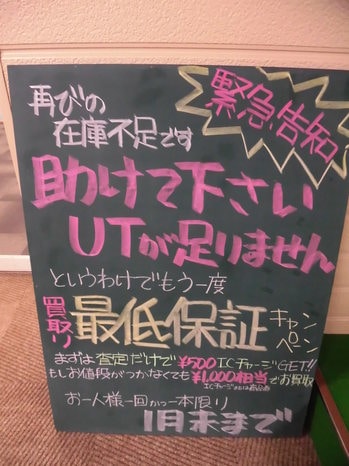 緊急告知
再びの
在庫不足です
助けて下さい
UTが足りません
というわけでもう一度
買取り最低保証キャンペーン
まずは査定だけで¥500ICチャージGET!!
もしお値段がつかなくても¥1,000相当でお買取
ICチャージまたは商品券
お一人様一回かつ一本限り
1月末まで